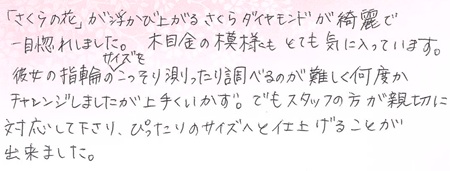 「さくらの花」が浮かび上がるさくらダイヤモンドが綺麗で
一目惚れしました。木目金の模様もとても気に入っています。
彼女の指輪のサイズをこっそり測ったり調べるのが難しく何度か
チャレンジしましたが上手くいかず。でもスタッフの方が親切に
対応して下さり、ぴったりのサイズへと仕上げることが
出来ました。